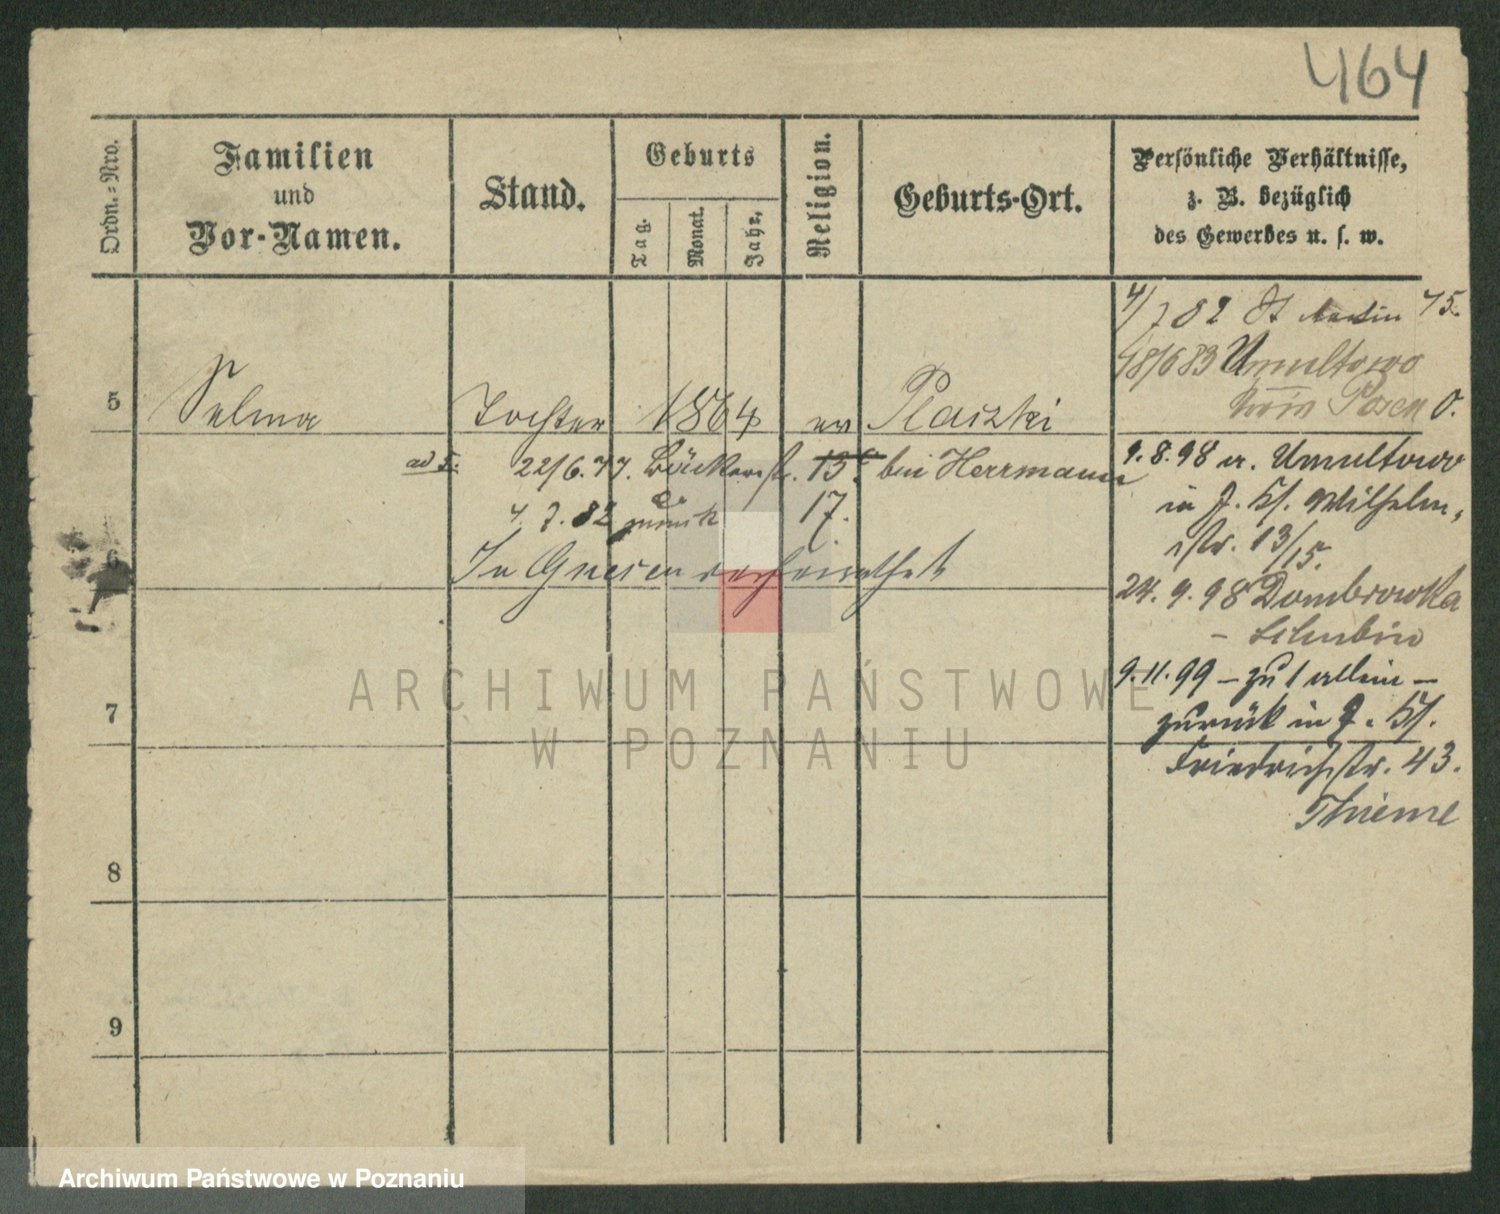 464
Ordn.=Nro.
Familien
und
Vor-Namen.
Stand.
Geburts
Tag.
Monat.
Jahr.
Religion.
Geburts-Ort.
Persönliche Verhältnisse,
z. B. bezüglich
des Gewerbes u. s. w.
5
Selma
Tochter
1864
ev
Placzki
ad 5. 22/6.77. Bäckerstr. 13. bei Herrmann
4. 7. 82 zurück 17.
In Gnesen verheirathet
6
7
8
9
4/7 82 St Martin 75.
18/6 83 Umultowo
Kreis Posen O.
9.8.98 a. Umultowo
in J. Kf. Wilhelm,
str. 13/15.
24. 9. 98 Dombrowka
- Schubin
9.11.99 – zu 1 allein –
zurück in J. Kf.
Friedrichstr. 43.
Thieme
ARCHIWUM PAŃSTWOWE
W POZNANIU
Archiwum Państwowe w Poznaniu